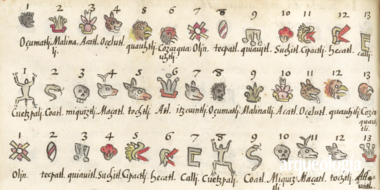 1 2 3 4 5 6 7 8 9 10 11 12 13
Oçumatli, Malina, Acatl, Ocelutl, quauhtli, Cozcaqua Olin, tecpatl, quiauitl, Suchitl Cipactli, hecatl, calli
1 2 3 4 5 6 7 8 9 10 11 12 13
Cuetzpali, Coatl, miquiztli, Maçatl, tochtli, Atl, itzcuintli, Oçumatli, Malinalli, Acatl, Ocelutl, quauhtli, Cozca
1 2 3 4 5 6 7 8 9 10 11 12 13
Olin, tecpatl, quiauitl, Suchitl Cipactli, hecatl, Calli, Cuetzpali, Coatl, Miquiz, Maçatl, tochtli
arqueología